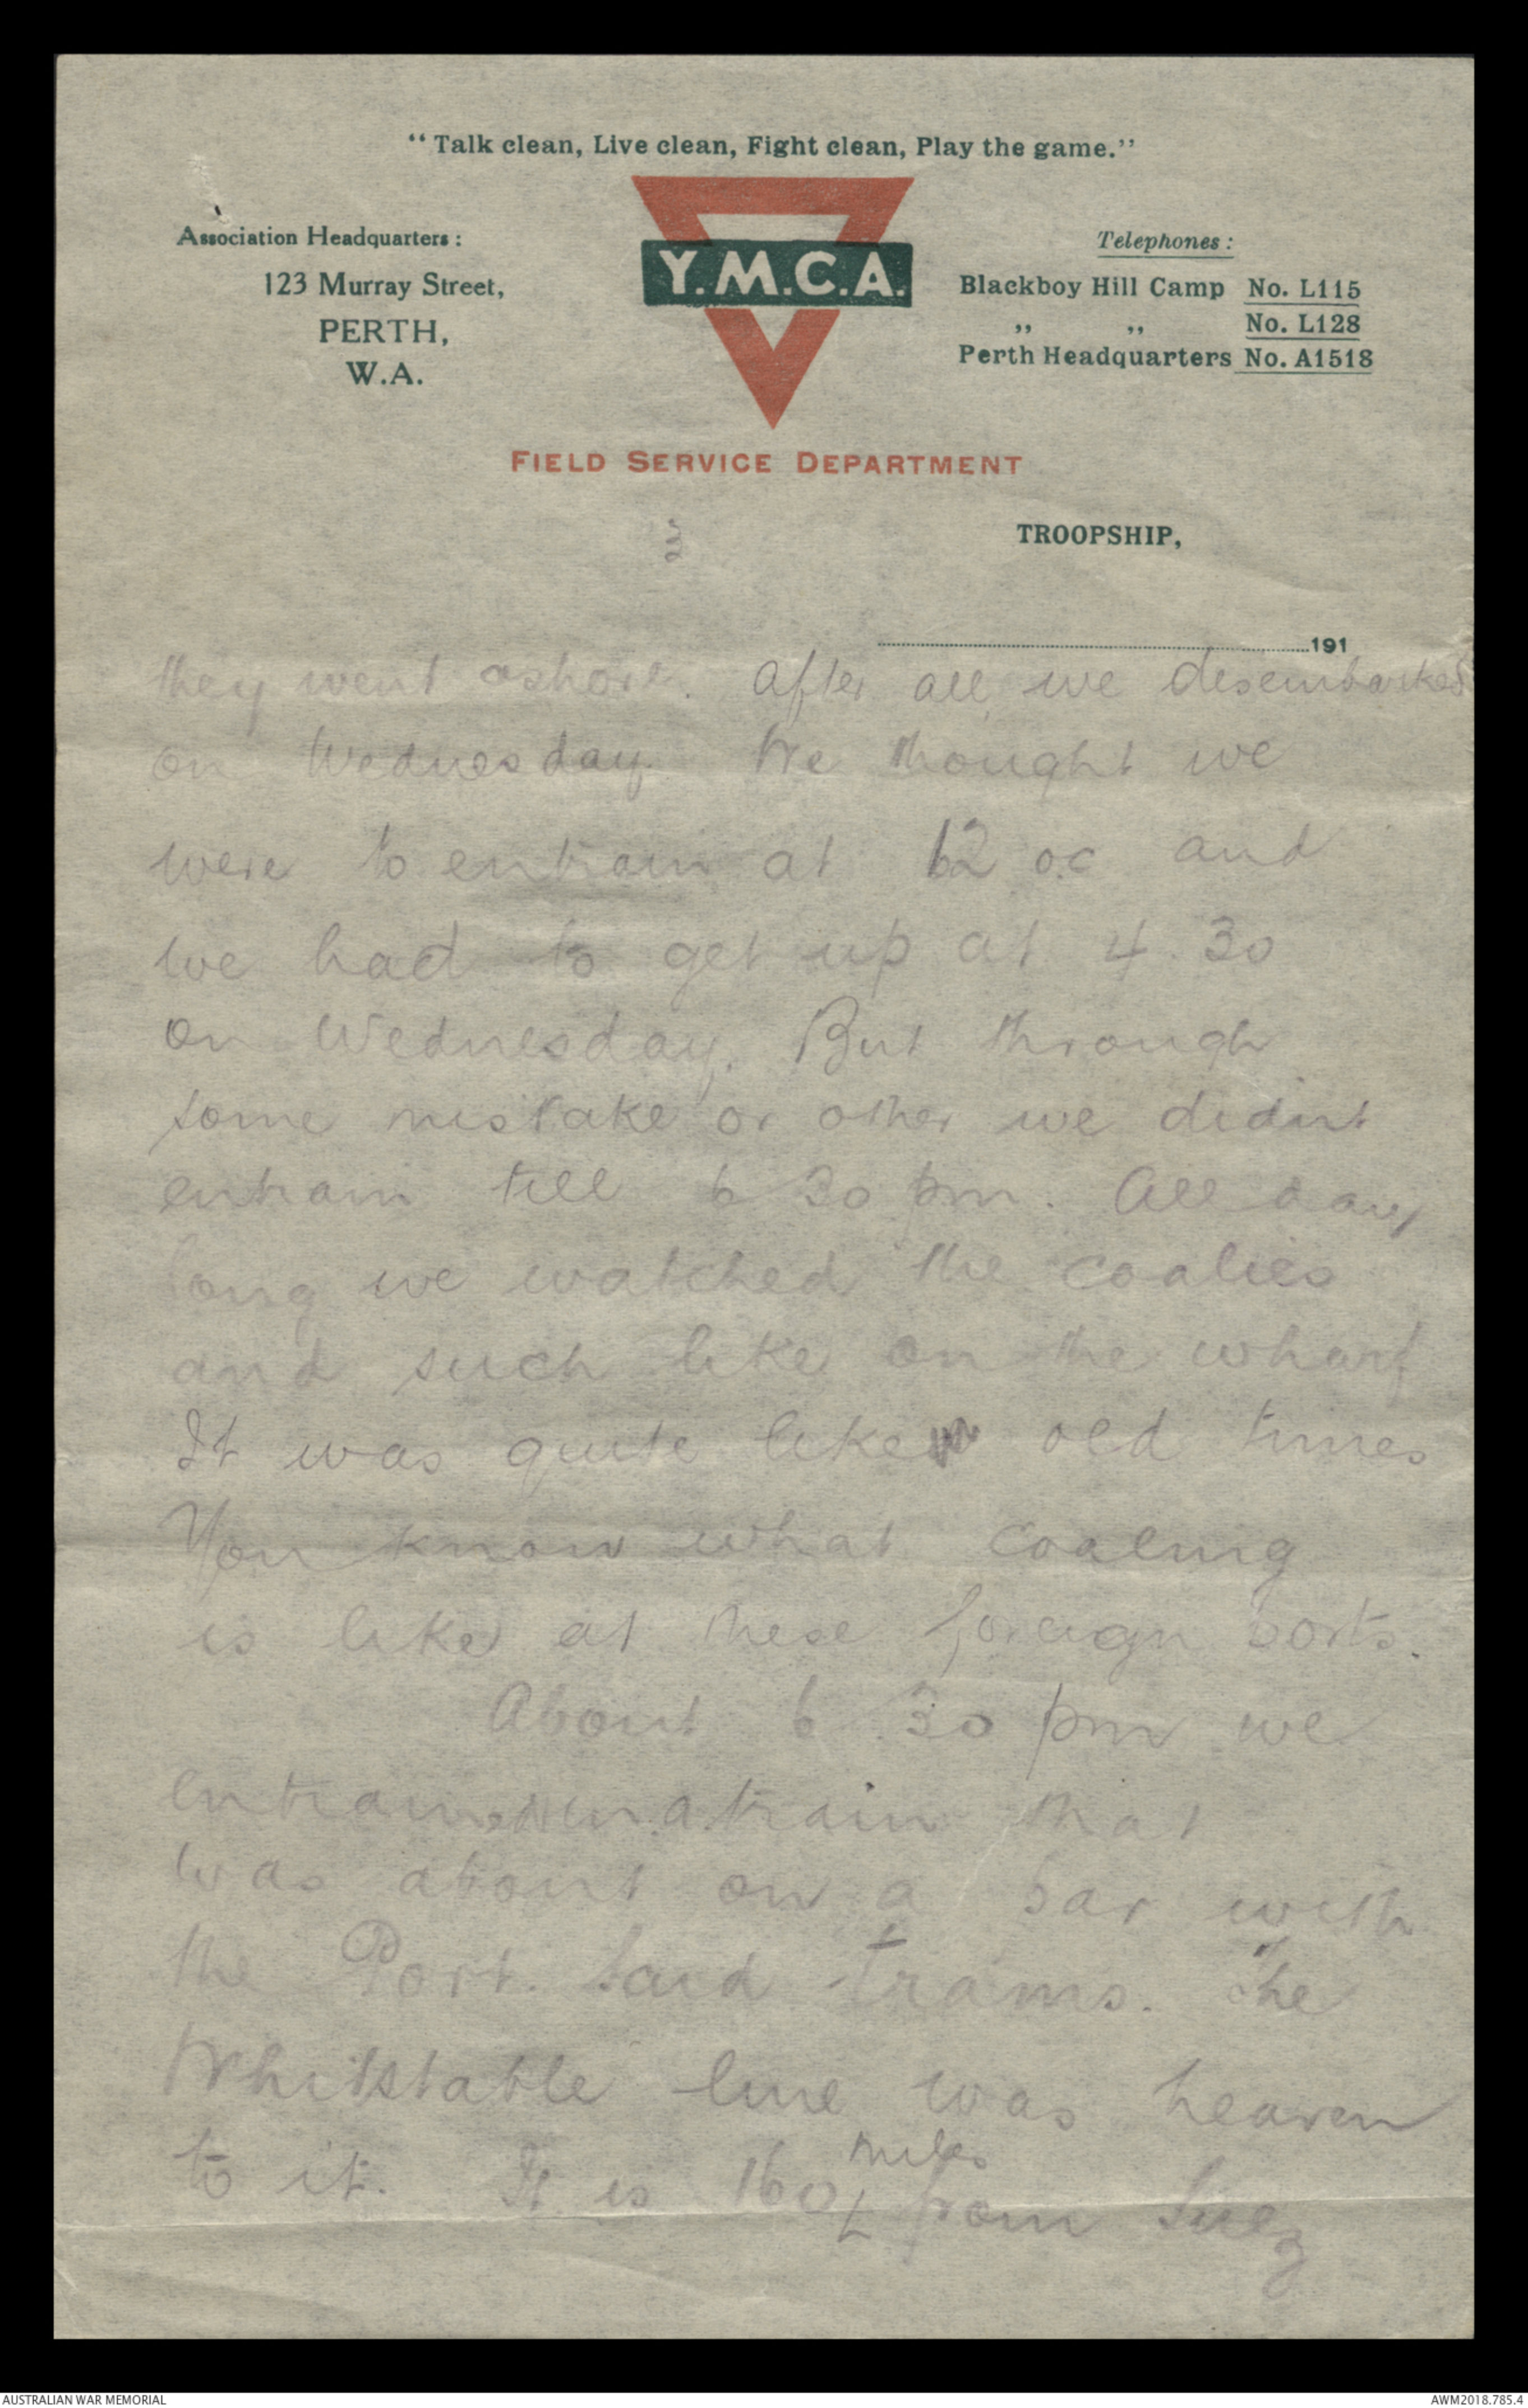 “Talk clean, Live clean, Fight clean, Play the game.”
Association Headquarters :
123 Murray Street,
PERTH,
W.A.
Y.M.C.A.
Telephones :
Blackboy Hill Camp No. L115
„ „ No. L128
Perth Headquarters No. A1518
FIELD SERVICE DEPARTMENT
3
TROOPSHIP,
191
they went ashore. After all we desembarked
on Wednesday. We thought we
were to entrain at 12 oc and
we had to get up at 4.30
on Wednesday. But through
some mistake or other we didint
entrain till 6 30 pm. All day
long we watched the coalies
and such like on the wharf
It was quite like old times
You know what coaling
is like at these foreign ports.
About 6 30 pm we
entrained in a train that
was about on a par with
the Port Said trams. The
Whitstable line was heaven
to it. It is 160 miles from Suez
AUSTRALIAN WAR MEMORIAL
AWM2018.785.4